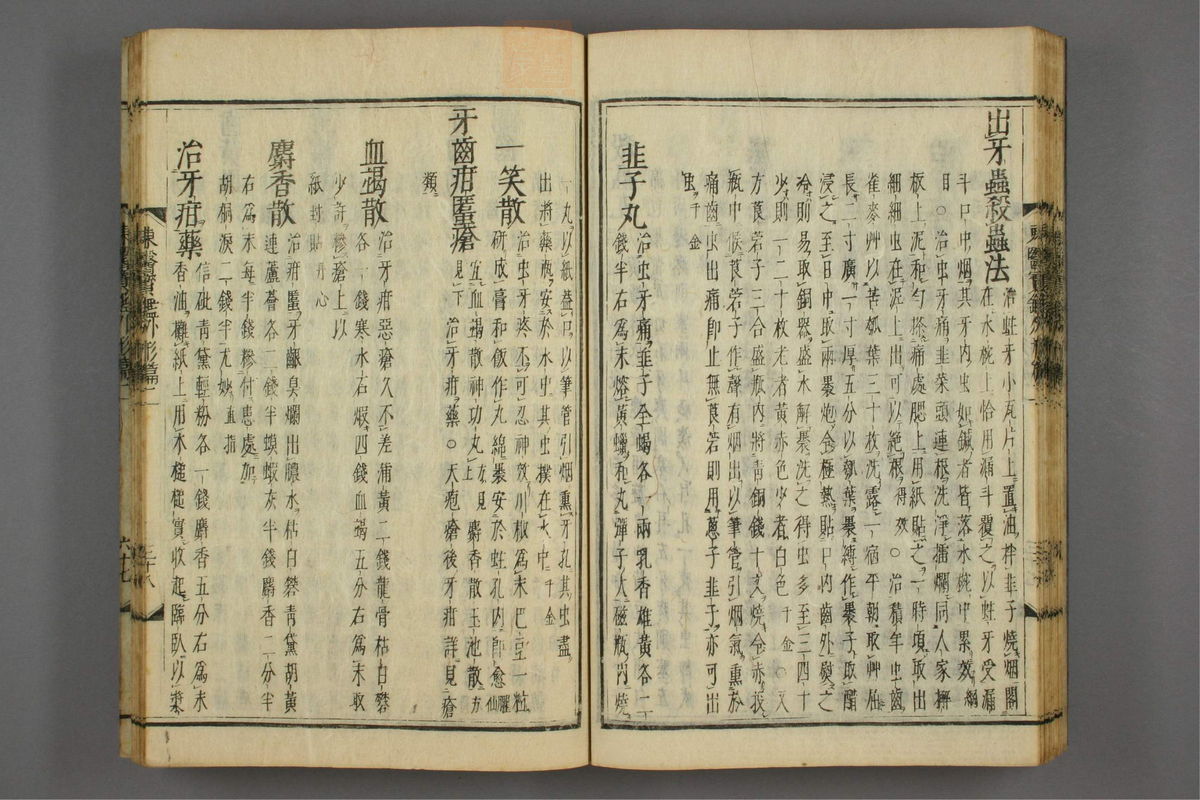 出牙蟲殺蟲法 治蛀牙小瓦片上置油拌韭子燒烟閣
在水椀上恰用漏斗覆之以蛀牙受漏
斗口中烟其牙內虫如鍼者皆落水椀中累效綱
目○治虫牙痛韭菜頭連根洗淨擂爛同人家
板上泥和勻搽痛處腮上用紙貼之一時頃取出
細細虫在泥上出可以絕根得效○治積年虫齒
雀麥艸以苦瓠葉三十枚洗露一宿平朝取艸
長二寸廣一寸厚五分以瓠葉裹縛作裹子取醋
浸之至日中取兩裹炮令極熱貼口內齒外熨之
冷則易取銅器盛水解裹洗之得虫多至三四十
少則一二十枚老者黃赤色少者白色千金○又
方莨菪子三合盛瓶內將靑銅錢十文燒令赤投
瓶中候莨菪子作聲有烟出以筆管引烟氣熏於
痛齒虫出痛卽止無莨菪則用葱子韭子亦可出
虫千金
韭子丸 治虫牙痛韭子全蝎各一兩乳香雄黃各二
錢半右爲末熔黃蠟和丸彈子大磁瓶內燒
一丸以紙蓋口以筆管引烟熏牙孔其虫盡
出將藥瓶安於水中其虫樸在水中千金
一笑散 治虫牙疼不可忍神效川椒爲末巴豆一粒
硏成膏和飯作丸綿裹安於蛀孔內卽愈臞仙
牙齒疳䘌瘡 宜血竭散神功丸方見上麝香散玉池散方
見下治牙疳藥○天疱瘡後牙疳詳見瘡
類
血竭散 治牙疳惡瘡久不差蒲黃二錢龍骨枯白礬
各一錢寒水石煆四錢血竭五分右爲末取
少許糝瘡上以
紙封貼丹心
麝香散 治疳䘌牙齦臭爛出膿水枯白礬靑黛胡黃
連蘆薈各二錢半蟆蝦灰半錢麝香二分半
右爲末每半錢糝付患處加
胡桐淚二錢半尤妙直指
治牙疳藥 信砒靑黛輕粉各一錢麝香五分右爲末
香油攤紙上用木槌槌實收起臨臥以漿
東醫寶鑑外形篇